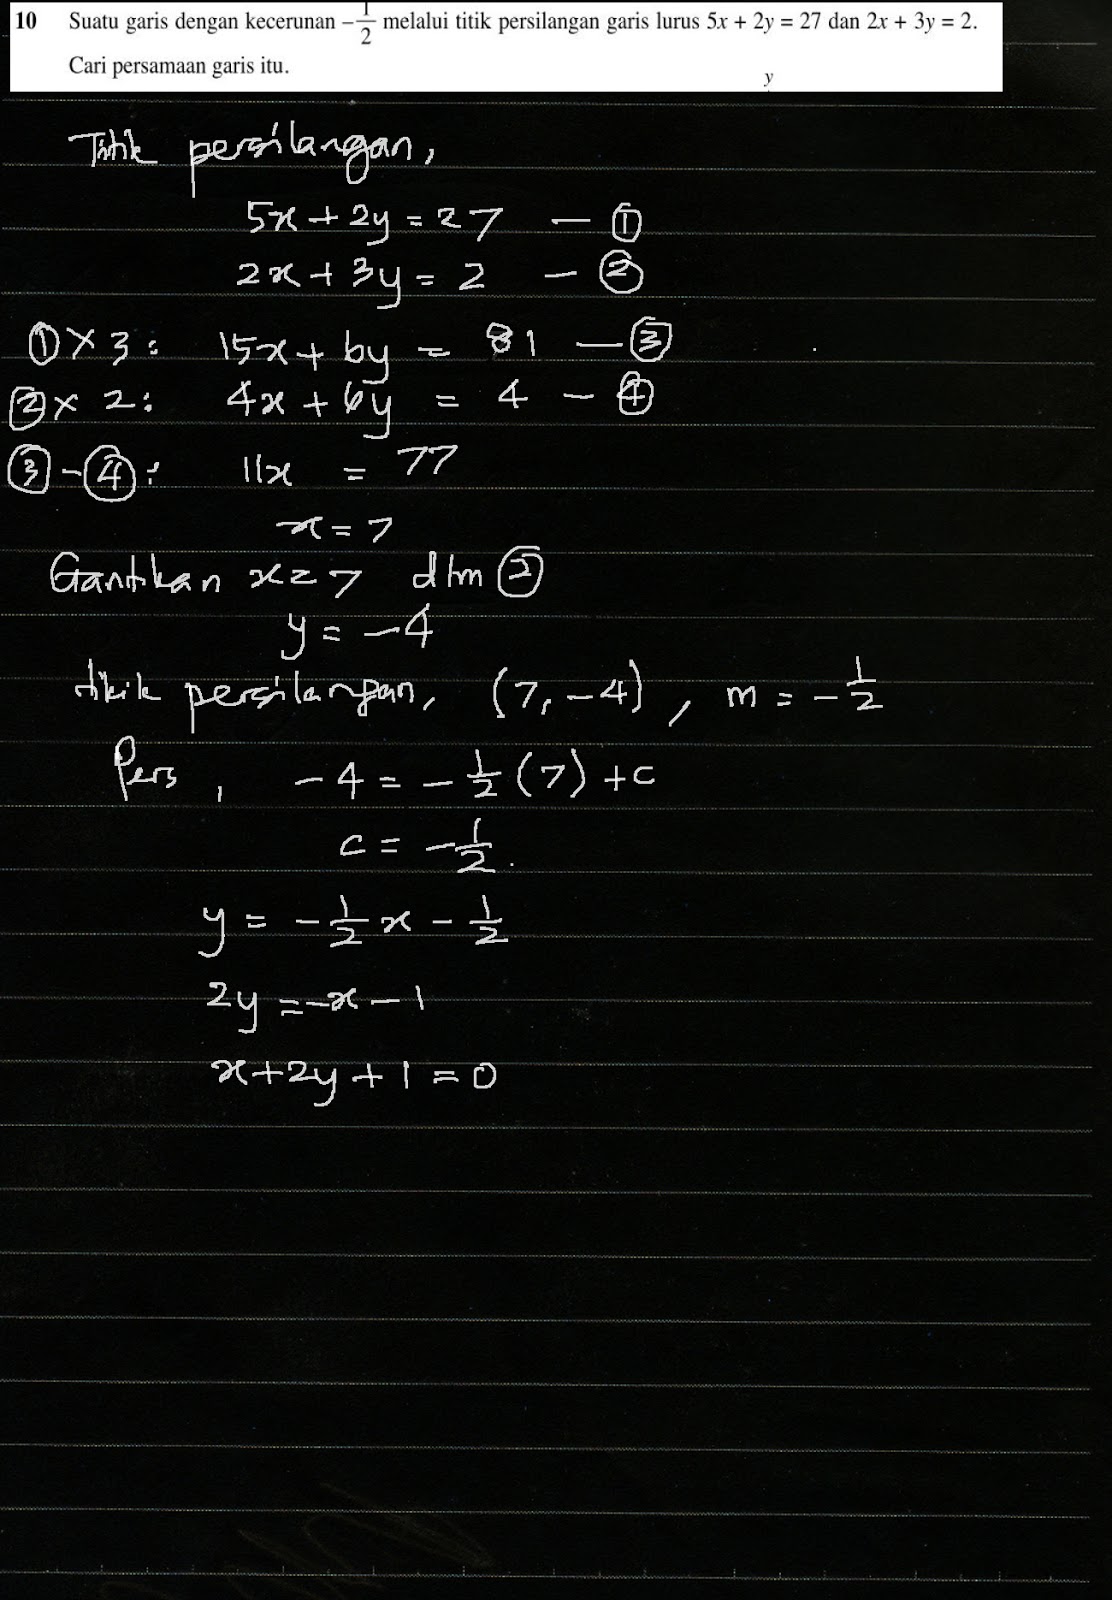 10 Suatu garis dengan kecerunan −1/2 melalui titik persilangan garis lurus 5x + 2y = 27 dan 2x + 3y = 2.
Cari persamaan garis itu.
y
Titik persilangan,
5x + 2y = 27 — ①
2x + 3y = 2 — ②
① × 3 : 15x + 6y = 81 — ③
② × 2 : 4x + 6y = 4 — ④
③ - ④ : 11x = 77
x = 7
Gantikan x = 7 dlm ②
y = -4
titik persilangan, (7, -4), m = -1/2
Pers, -4 = -1/2 (7) + c
c = -1/2.
y = -1/2 x - 1/2
2y = -x - 1
x + 2y + 1 = 0